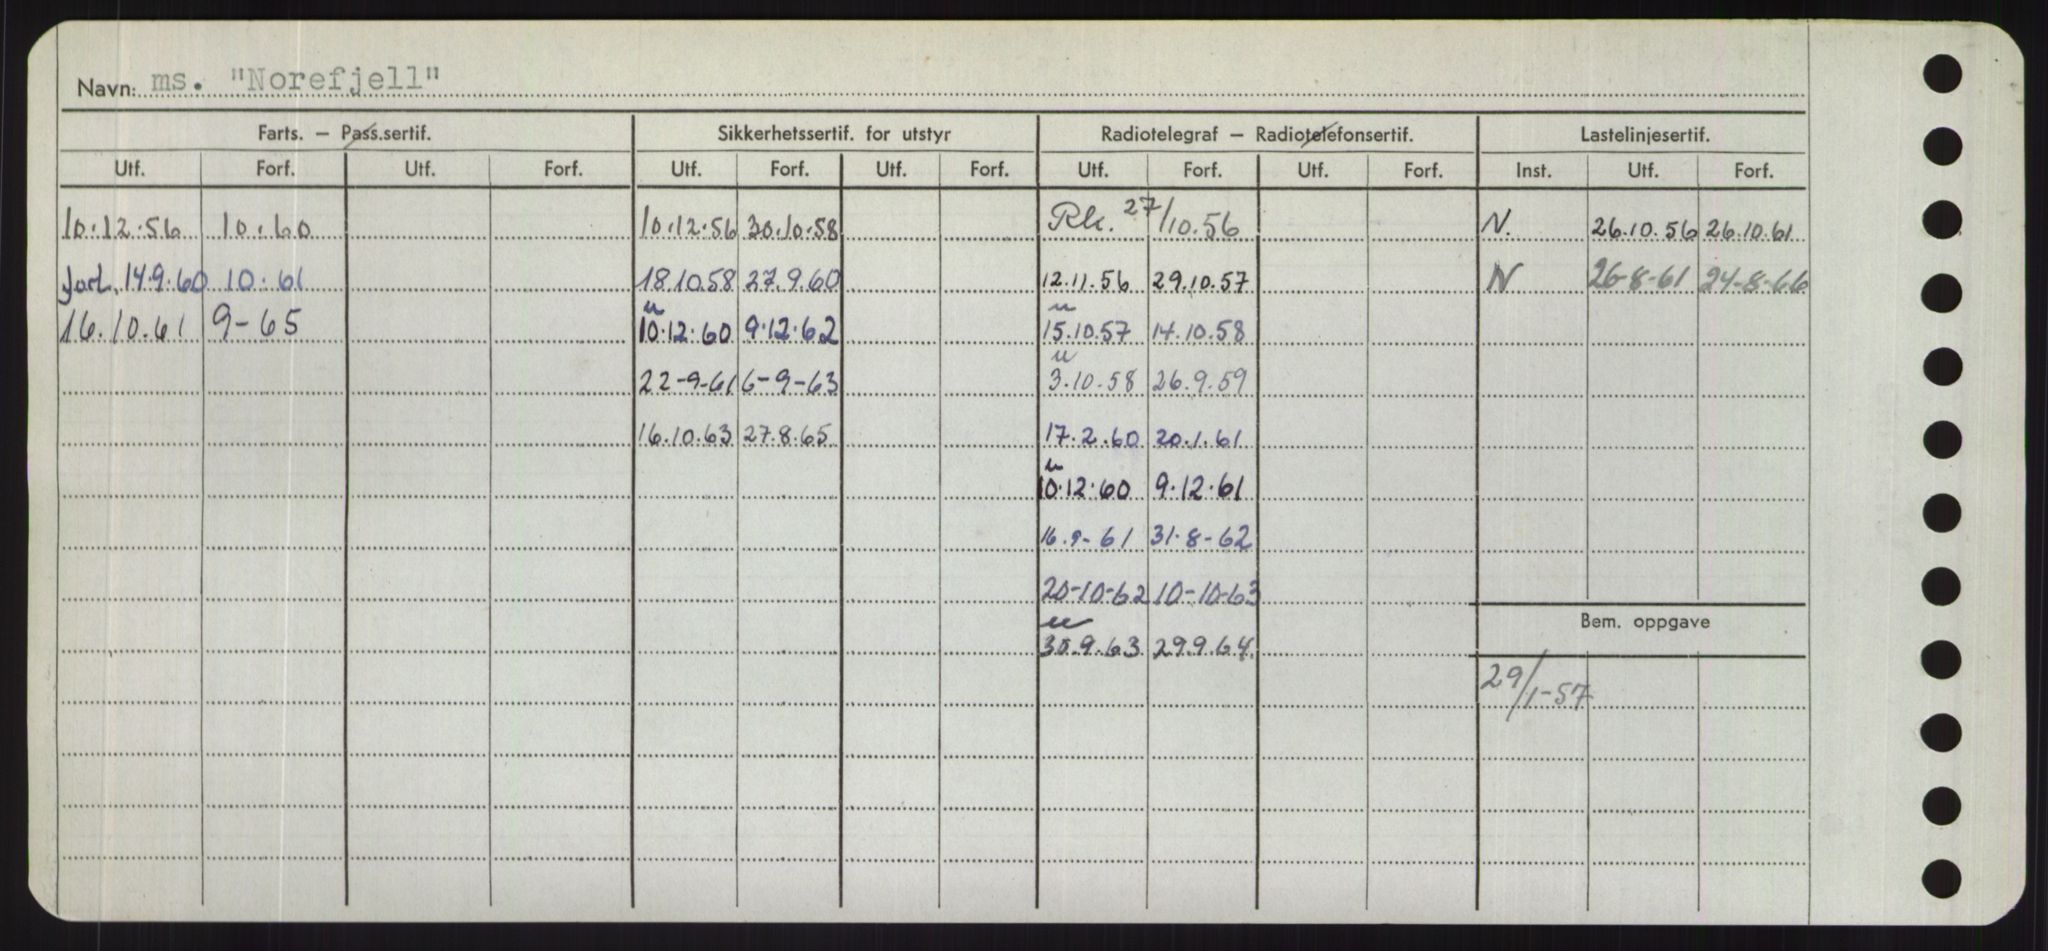 Navn: ms. "Norefjell"
Farts. — Pass.sertif. Sikkerhetssertif. for utstyr Radiotelegraf — Radiotelefonsertif. Lastelinjesertif.
Utf. Forf. Utf. Forf. Utf. Forf. Utf. Forf. Utf. Forf. Utf. Forf. Inst. Utf. Forf.
10.12.56 10.60 10.12.56 30.10.58 Rk. 27/10.56 N. 26.10.56 26.10.61
14.9.60 10.61 18.10.58 27.9.60 12.11.56 29.10.57 N 26-8-61 24-8-66
16.10.61 9-65 10.12.60 9.12.62 15.10.57 14.10.58
22-9-61 6-9-63 3.10.58 26.9.59
16.10.63 27.8.65 17.2.60 20.1.61
10.12.60 9.12.61
16.9-61 31.8-62
20-10-62 10-10-63
Bem. oppgave
30.9.63 29.9.64.
29/1-57